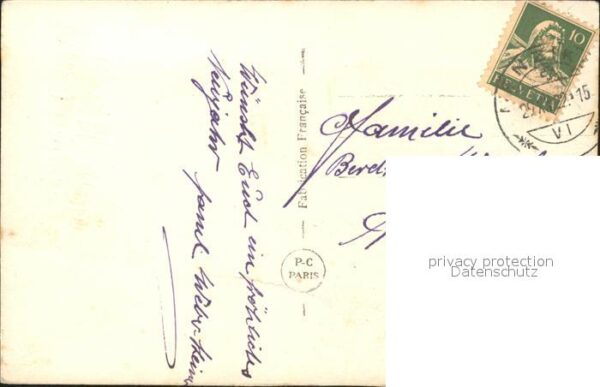 Wünscht Euch ein fröhliches
Neujahr Faml. Weber-Heim
Fabrication Française
P-C
PARIS
Familie
10
HELVETIA
VI
privacy protection
Datenschutz